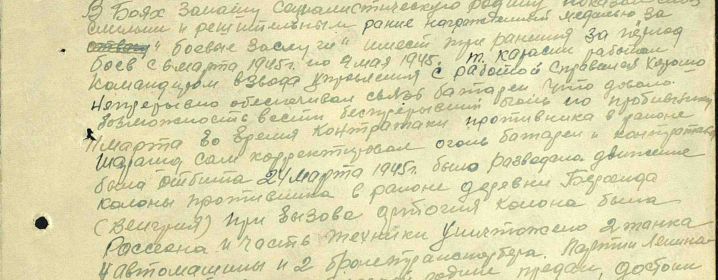 В Боях за нашу Социалистическую родину показал себя
смелым и решительным ранее награжденный медалью за
отвагу "боевые заслуги" имеет три ранения за период
боев с 6 марта 1945 г. по 9 мая 1945. т. Карасин работал
командиром взвода управления с работой справился хорошо
непрерывно обеспечивал связь батареи что давало
возможность вести беспрерывный огонь по противнику
11 марта во время контратаки противника в районе
сам корректировал огонь батареи и контратака
была отбита 24 марта 1945 г. было разведано движение
колоны противника в районе деревни
(Венгрия) при вызове артогня колона была
Рассеена и часть техники уничтожено 2 танка
4 автомашины и 2 бронетранспортера. Партии Ленина
родине предан, достоин